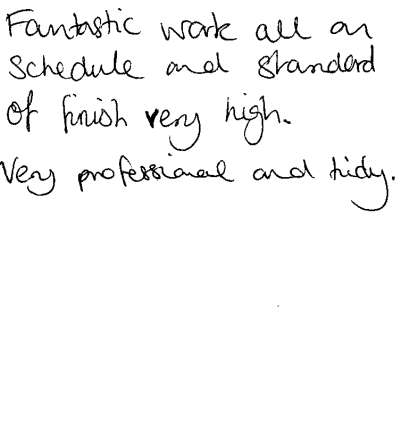 Fantastic work all on
schedule and standard
of finish very high.
Very professional and tidy.